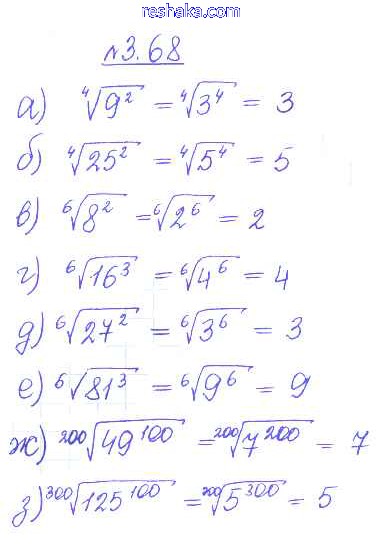 reshaka.com
№3.68
а) ⁴√9² = ⁴√3⁴ = 3
б) ⁴√25² = ⁴√5⁴ = 5
в) ⁶√8² = ⁶√2⁶ = 2
г) ⁶√16³ = ⁶√4⁶ = 4
д) ⁶√27² = ⁶√3⁶ = 3
е) ⁶√81³ = ⁶√9⁶ = 9
ж) ²⁰⁰√49¹⁰⁰ = ²⁰⁰√7²⁰⁰ = 7
з) ³⁰⁰√125¹⁰⁰ = ³⁰⁰√5³⁰⁰ = 5